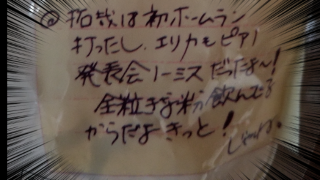 @拓哉は初ホームラン
打ったし、エリカもピアノ
発表会ノーミスだったよ〜!
全粒子粉飲んでる
からだよきっと!